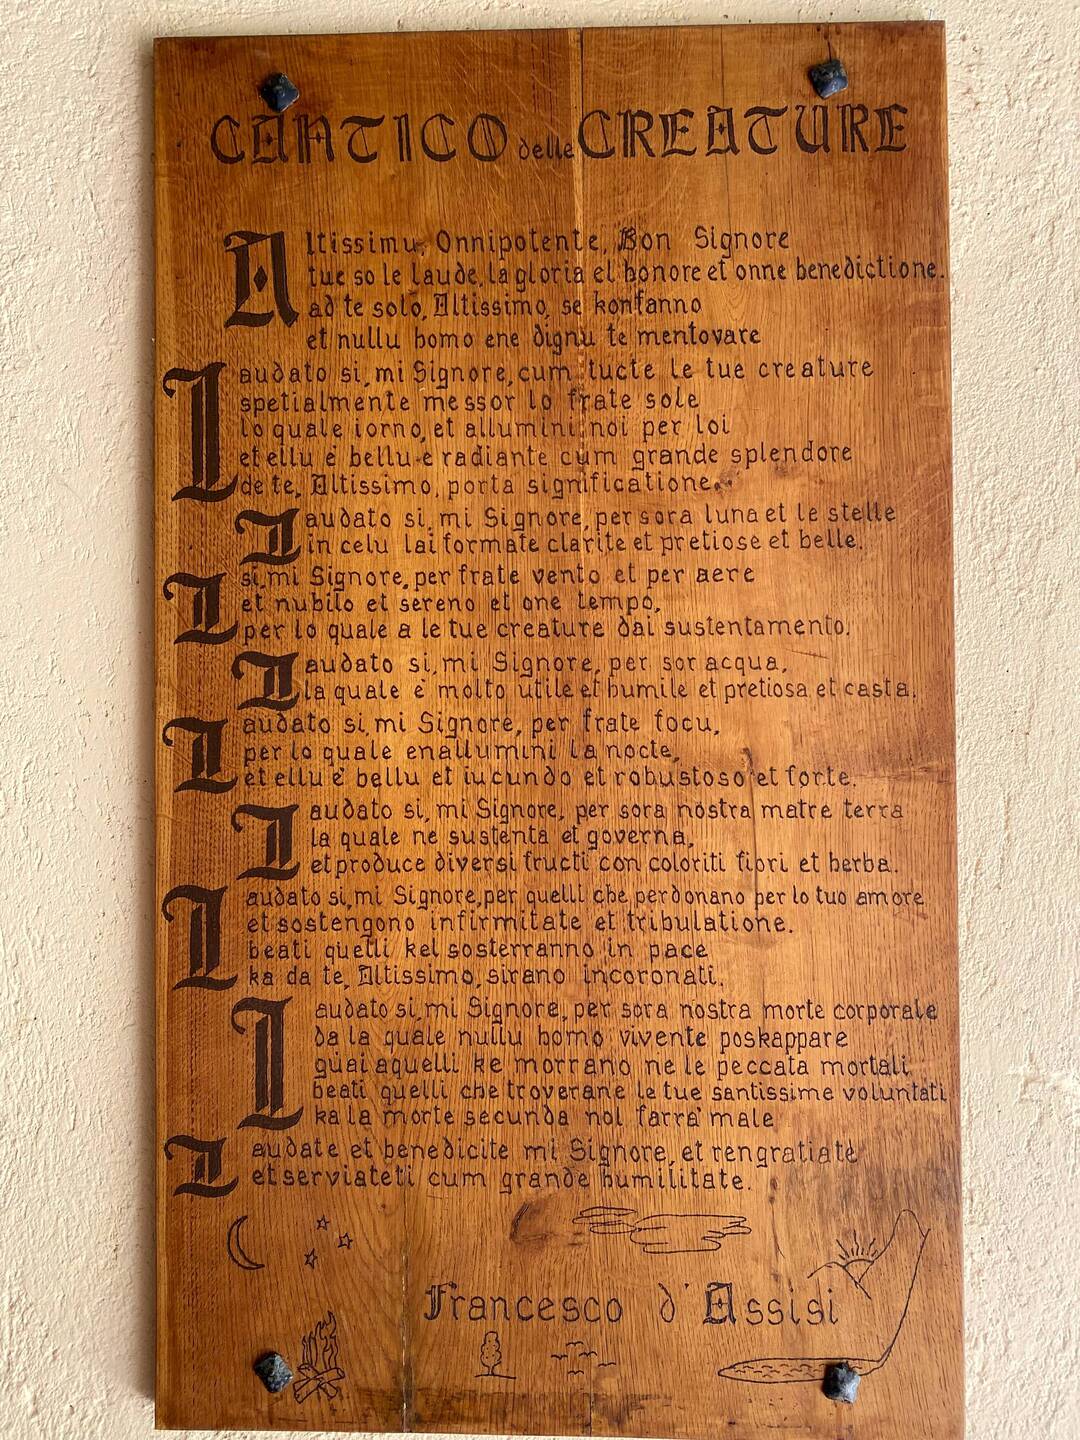 CANTICO delle CREATURE
Altissimu, Onnipotente, Bon Signore
tue so le laude, la gloria el honore et onne benedictione.
ad te solo, Altissimo, se konfanno
et nullu homo ene dignu te mentovare
Laudato si, mi Signore, cum tucte le tue creature
spetialmente messor lo frate sole
lo quale iorno, et allumini noi per loi
et ellu è bellu e radiante cum grande splendore
de te, Altissimo, porta significatione.
Laudato si, mi Signore, per sora luna et le stelle
in celu lai formate clarite et pretiose et belle.
L si, mi Signore, per frate vento et per aere
et nubilo et sereno et one tempo,
per lo quale a le tue creature dai sustentamento.
Laudato si, mi Signore, per sor acqua,
la quale è molto utile et humile et pretiosa et casta.
Laudato si, mi Signore, per frate focu,
per lo quale enallumini la nocte,
et ellu è bellu et iucundo et robustoso et forte.
Laudato si, mi Signore, per sora nostra matre terra
la quale ne sustenta et governa,
et produce diversi fructi con coloriti fiori et herba.
Laudato si, mi Signore, per quelli che perdonano per lo tuo amore
et sostengono infirmitate et tribulatione.
beati quelli kel sosterranno in pace
ka da te, Altissimo, sirano incoronati.
Laudato si, mi Signore, per sora nostra morte corporale
da la quale nullu homo vivente poskappare
guai aquelli ke morrano ne le peccata mortali
beati quelli che troverane le tue santissime voluntati
ka la morte secunda nol farrà male
Laudate et benedicite mi Signore, et rengratiate
et serviateti cum grande humilitate.
Francesco d'Assisi